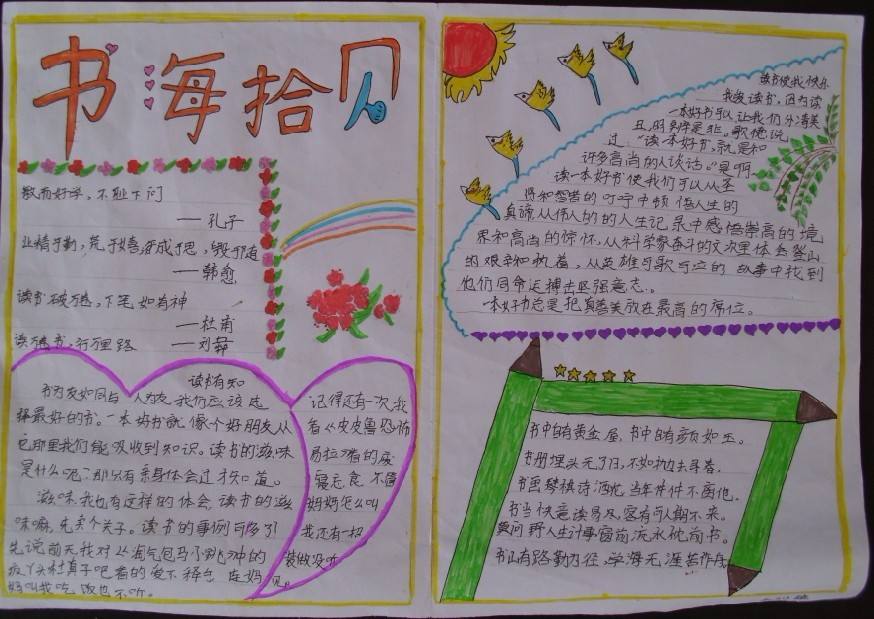 书海拾贝
敏而好学,不耻下问
——孔子
业精于勤,荒于嬉,行成于思,毁于随
——韩愈
读书破万卷,下笔如有神
——杜甫
读万卷书,行万里路 ——刘彝
读书有知
书为友如同与人为友,我们应该选
择最好的书。一本好书就像个好朋友从
它那里我们能吸收到知识。读书的滋味
是什么呢?那只有亲身体会过才知道。
滋味,我也有这样的体会,读书的滋
味嘛,先卖个关子。读书的事例可多了!
先说前天我对《淘气包马小跳》中的
疯丫头杜真子吧看的爱不释台,在妈
妈叫我吃饭也不听。
记得还有一次,我
看《皮皮鲁恐怖
易拉》看的废
寝忘食,不管
妈妈怎么叫
我还有一招
装做没听
见。
读书使我快乐
我爱读书,因为读
一本好书可以让我们分清美
丑,明辨是非。歌德说
过:“读一本好书,就是和
许多高尚的人谈话。”是啊,
读一本好书使我们可以从圣
贤和智者的叮咛中顿悟人生的
真谛从伟人的的人生记录中感悟崇高的境
界和高尚的情怀,从科学家奋斗的文次里体会登山
的艰辛和执着,从英雄可歌可泣的故事中找到
他们同命运搏击坚强意志。
一本好书总是把真善美放在最高的席位。
书中自有黄金屋,书中自有颜如玉。
书册埋头无了日,不如抛去寻春。
书画琴棋诗酒花,当年件件不离他。
书当快意读易尽,客有可人期不来。
莫问野人生计事,窗前流水枕前书。
书山有路勤为径,学海无涯苦作舟